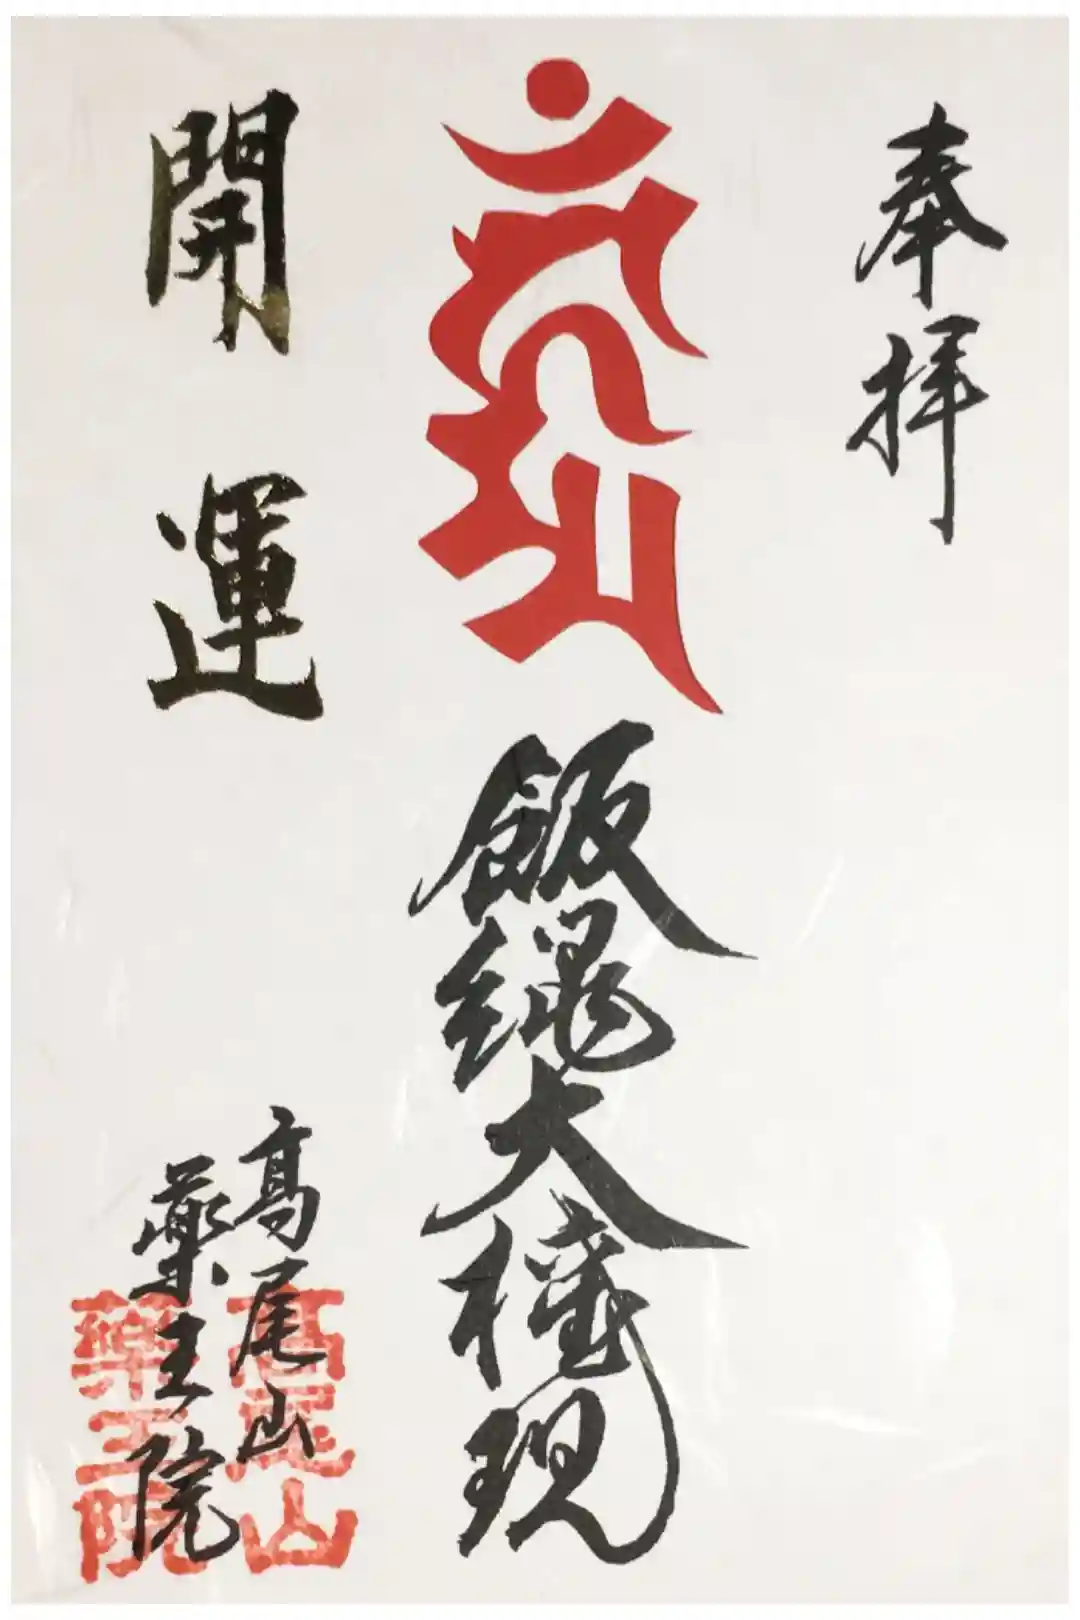 奉拝
飯縄大権現
開運
髙尾山
薬王院
髙尾山
薬王院